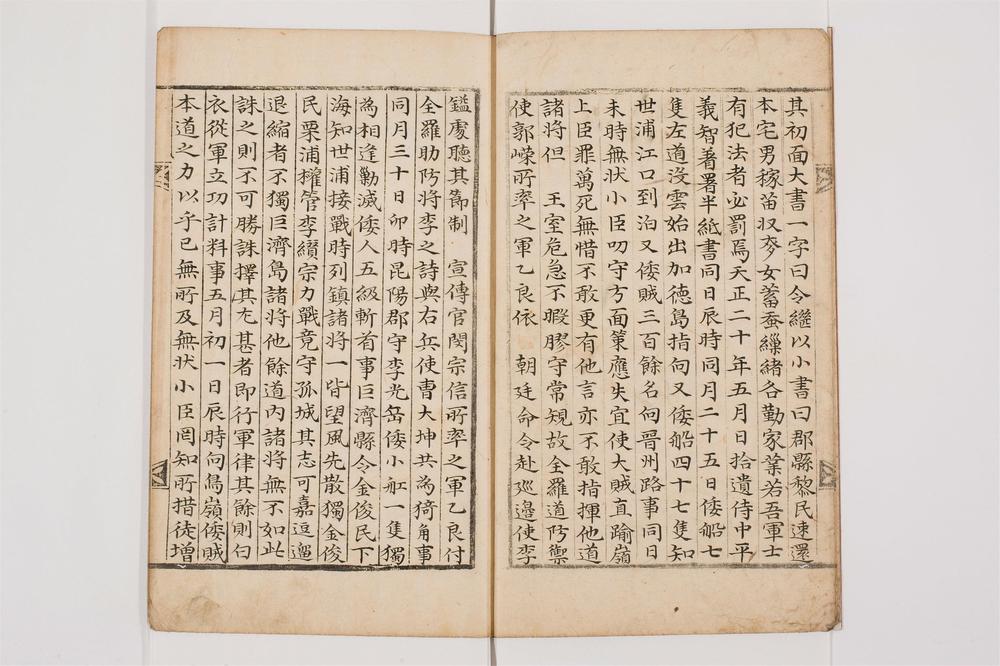 其初面大書一字曰令繼以小書曰郡縣黎民速還
本宅男稼苗収麥女蓄蚕繅緒各勤家業若吾軍士
有犯法者必罰焉天正二十年五月日拾遺侍中平
義智著署半紙書同日辰時同月二十五日倭船七
隻左道沒雲始出加德島指向又倭船四十七隻知
世浦江口到泊又倭賊三百餘名向晋州路事同日
未時無狀小臣叨守方面策應失宜使大賊直踰嶺
上臣罪萬死無惜不敢更有他言亦不敢指揮他道
諸將但 王室危急不暇膠守常規故全羅道防禦
使郭嶸所率之軍乙良依 朝廷命令赴巡邉使李
鎰處聽其節制 宣傳官閔宗信所率之軍乙良付
全羅助防將李之詩與右兵使曺大坤共為犄角事
同月三十日卯時昆陽郡守李光岳倭小舡一隻獨
為相逢勦滅倭人五級斬首事巨濟縣令金俊民下
海知世浦接戰時列鎮諸將一皆望風先散獨金俊
民栗浦權管李纘宗力戰竟守孤城其志可嘉逗遛
退縮者不獨巨濟島諸將他餘道內諸將無不如此
誅之則不可勝誅擇其尤甚者即行軍律其餘則白
衣從軍立功計料事五月初一日辰時向鳥嶺倭賊
本道之力以乎已無所及無狀小臣罔知所措徒增